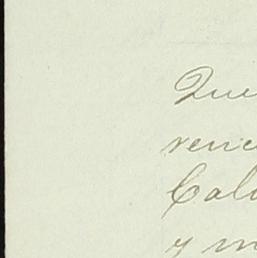 Que
renc
Cali
y m